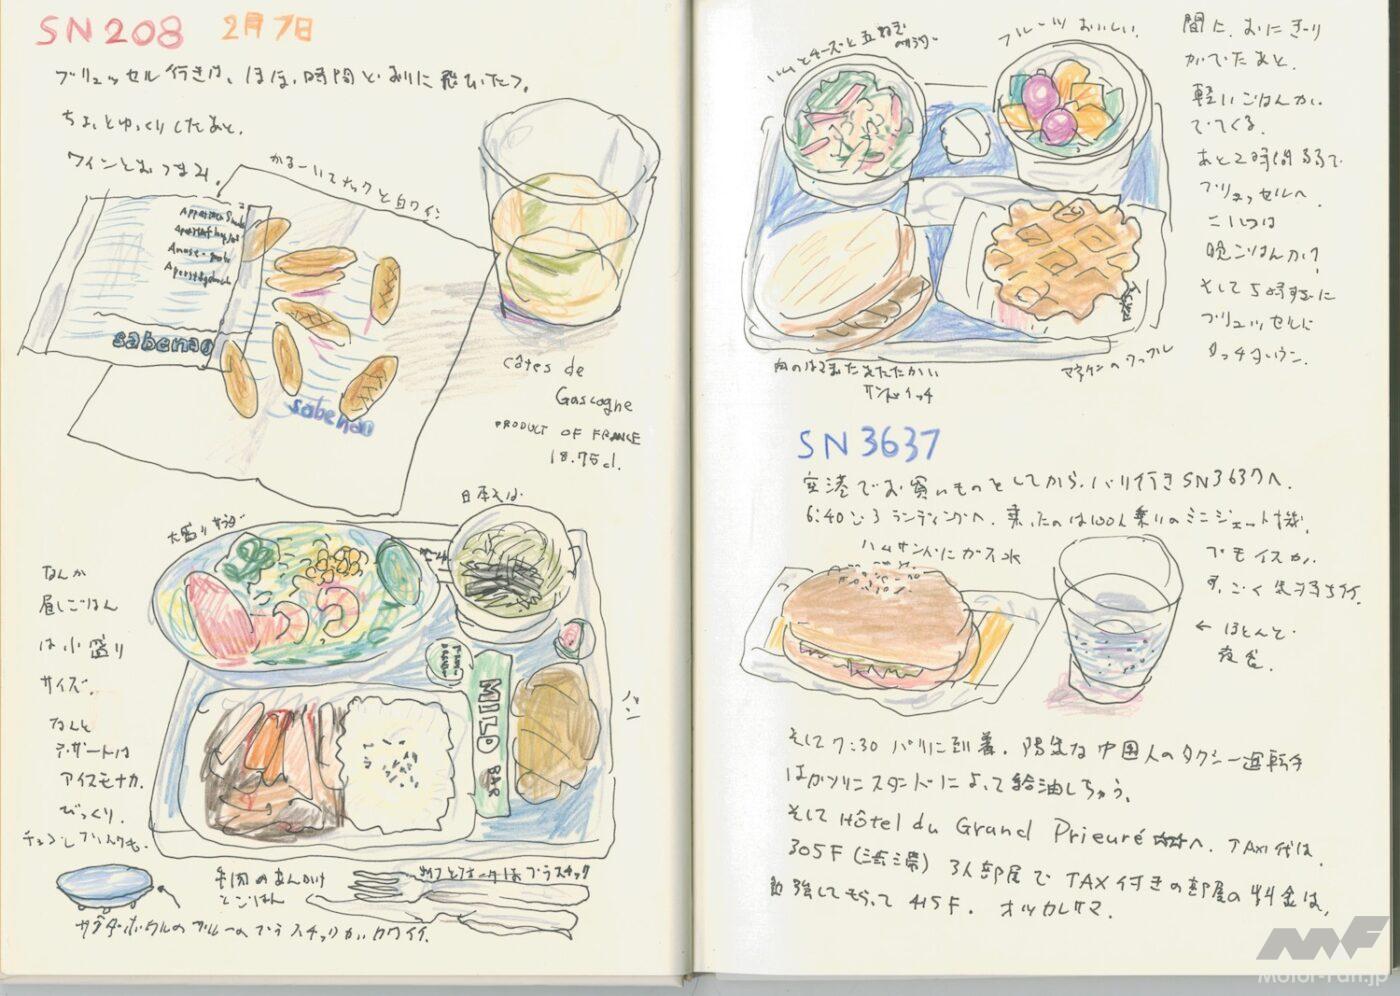 SN208 2月7日
ブリュッセル行きは、ほぼ、時間どおりに飛びたつ。
ちょっとゆっくりしたあと、
ワインとおつまみ。
かるーいスナックと白ワイン
sabena
sabena
Côtes de
Gascogne
PRODUCT OF FRANCE
18.75cl.
大盛りサラダ
日本そば
なんか
昼ごはん
は小盛り
サイズ。
なんと
デザートは
アイスモナカ。
びっくり。
MILD BAR
パン
牛肉のあんかけ
とごはん
ナイフとフォークはプラスチック
サラダボウルのブルーのプラスチックがカワイイ。
ハムとチーズと玉ねぎ
フルーツおいしい。
間に、おにぎり
がでたあと、
軽いごはんが
でてくる。
あと2時間弱で
ブリュッセルへ。
こいつは
晩ごはんか?
そして5時すぎに
ブリュッセルに
タッチダウン。
肉のはさまったあたたかい
サンドイッチ
マネケンのワッフル
SN3637
空港でお買いものをしてから、パリ行きSN3637へ。
6:40ごろランディングへ。乗ったのは100人乗りのミニジェット機。
でもイスが
すごく気持ち行。
ハムサンドにガス水
← ほとんど
夜食。
そして7:30 パリに到着。陽気な中国人のタクシー運転手
はガソリンスタンドによって給油しちゃう。
そしてHôtel du Grand Prieuré☆☆へ。TAXI代は、
305F (渋滞) 3人部屋でTAX付きの部屋の料金は、
勉強してもらって415F。オツカレサマ。
Motor-Fan.jp